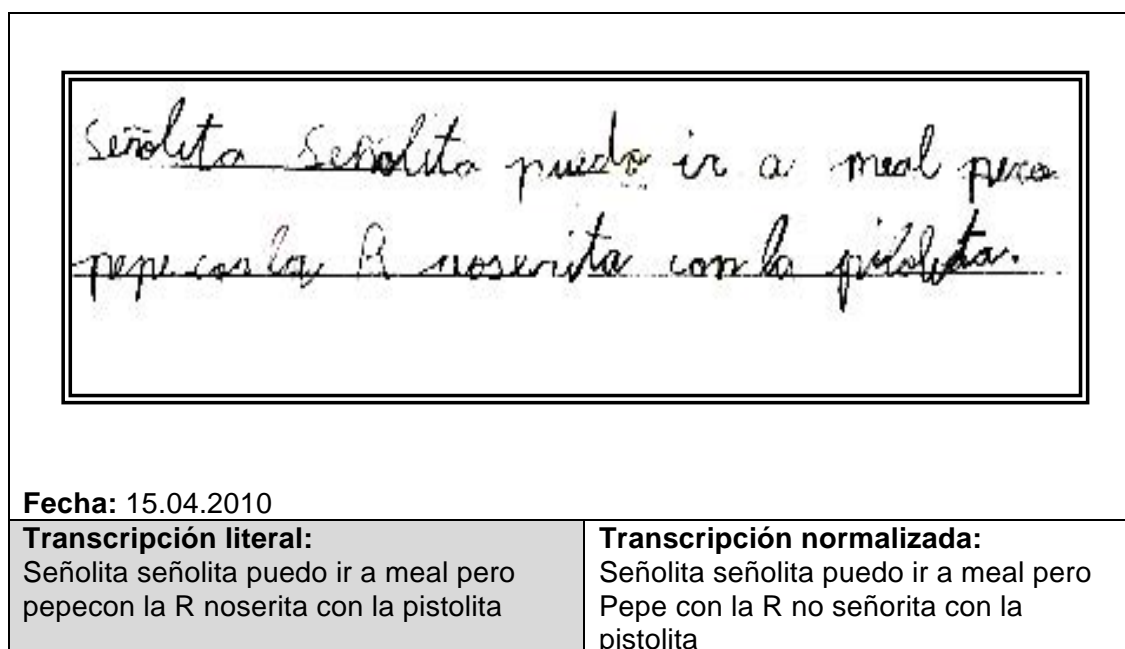 Señolita Señolita puedo ir a meal pero
pepe con la R noserita con la pitolita.
Fecha: 15.04.2010
Transcripción literal:
Señolita señolita puedo ir a meal pero
pepecon la R noserita con la pistolita
Transcripción normalizada:
Señolita señolita puedo ir a meal pero
Pepe con la R no señorita con la
pistolita